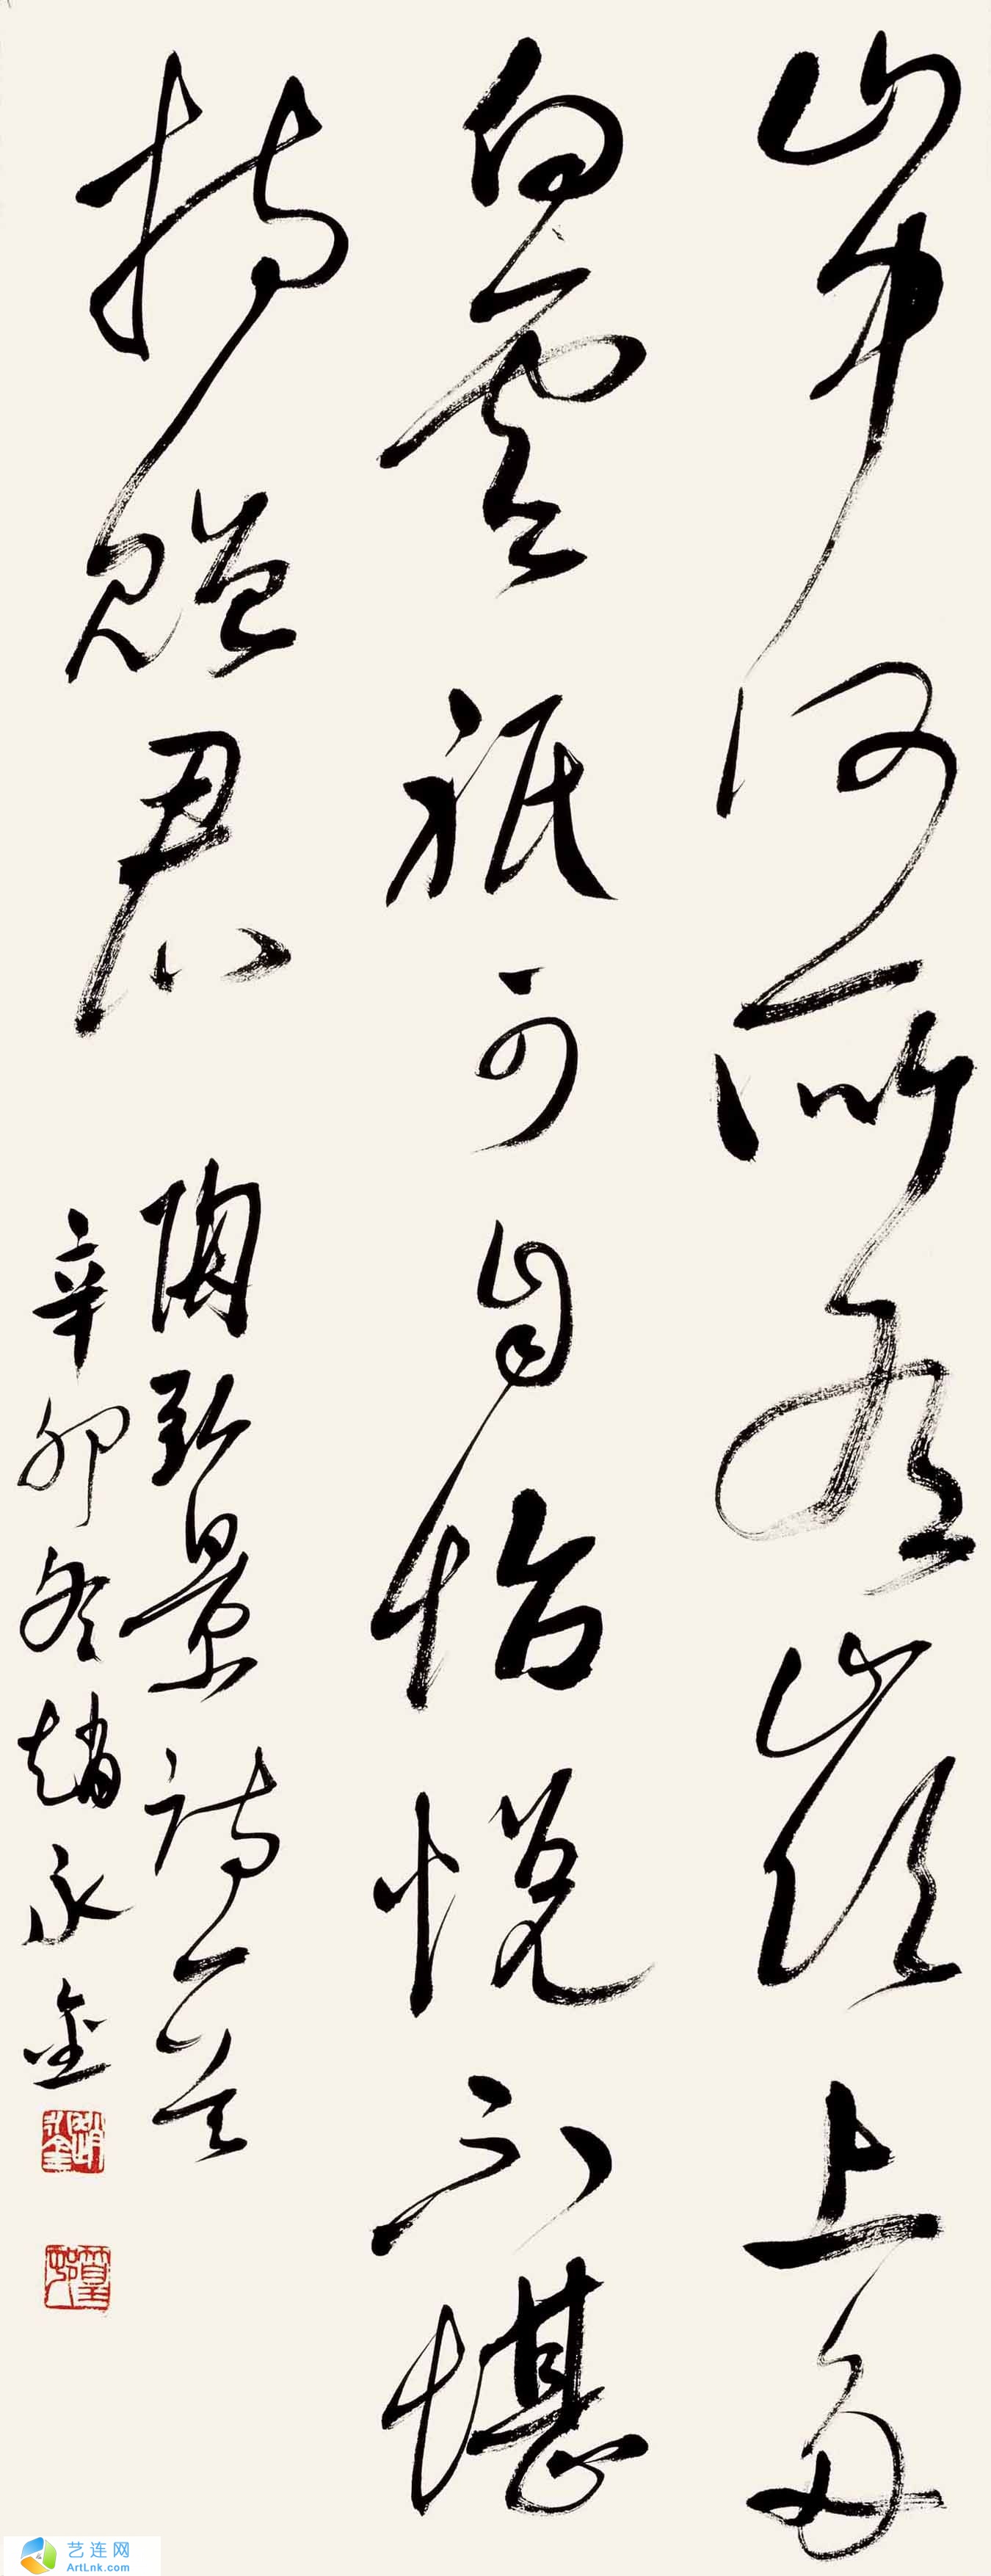 山中何所有岭上多
白云祇可自怡悦不堪
持赠君
陶弘景诗一首
辛卯冬赵永金
艺连网
ArtLnk.com